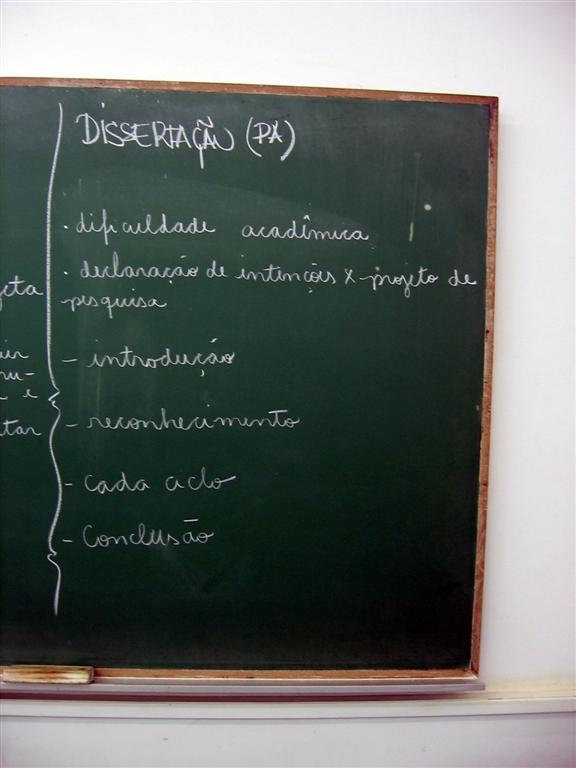 DISSERTAÇÃO (PA)
· dificuldade acadêmica
· declaração de intenções x projeto de
pesquisa
- introdução
- reconhecimento
- cada ciclo
- Conclusão